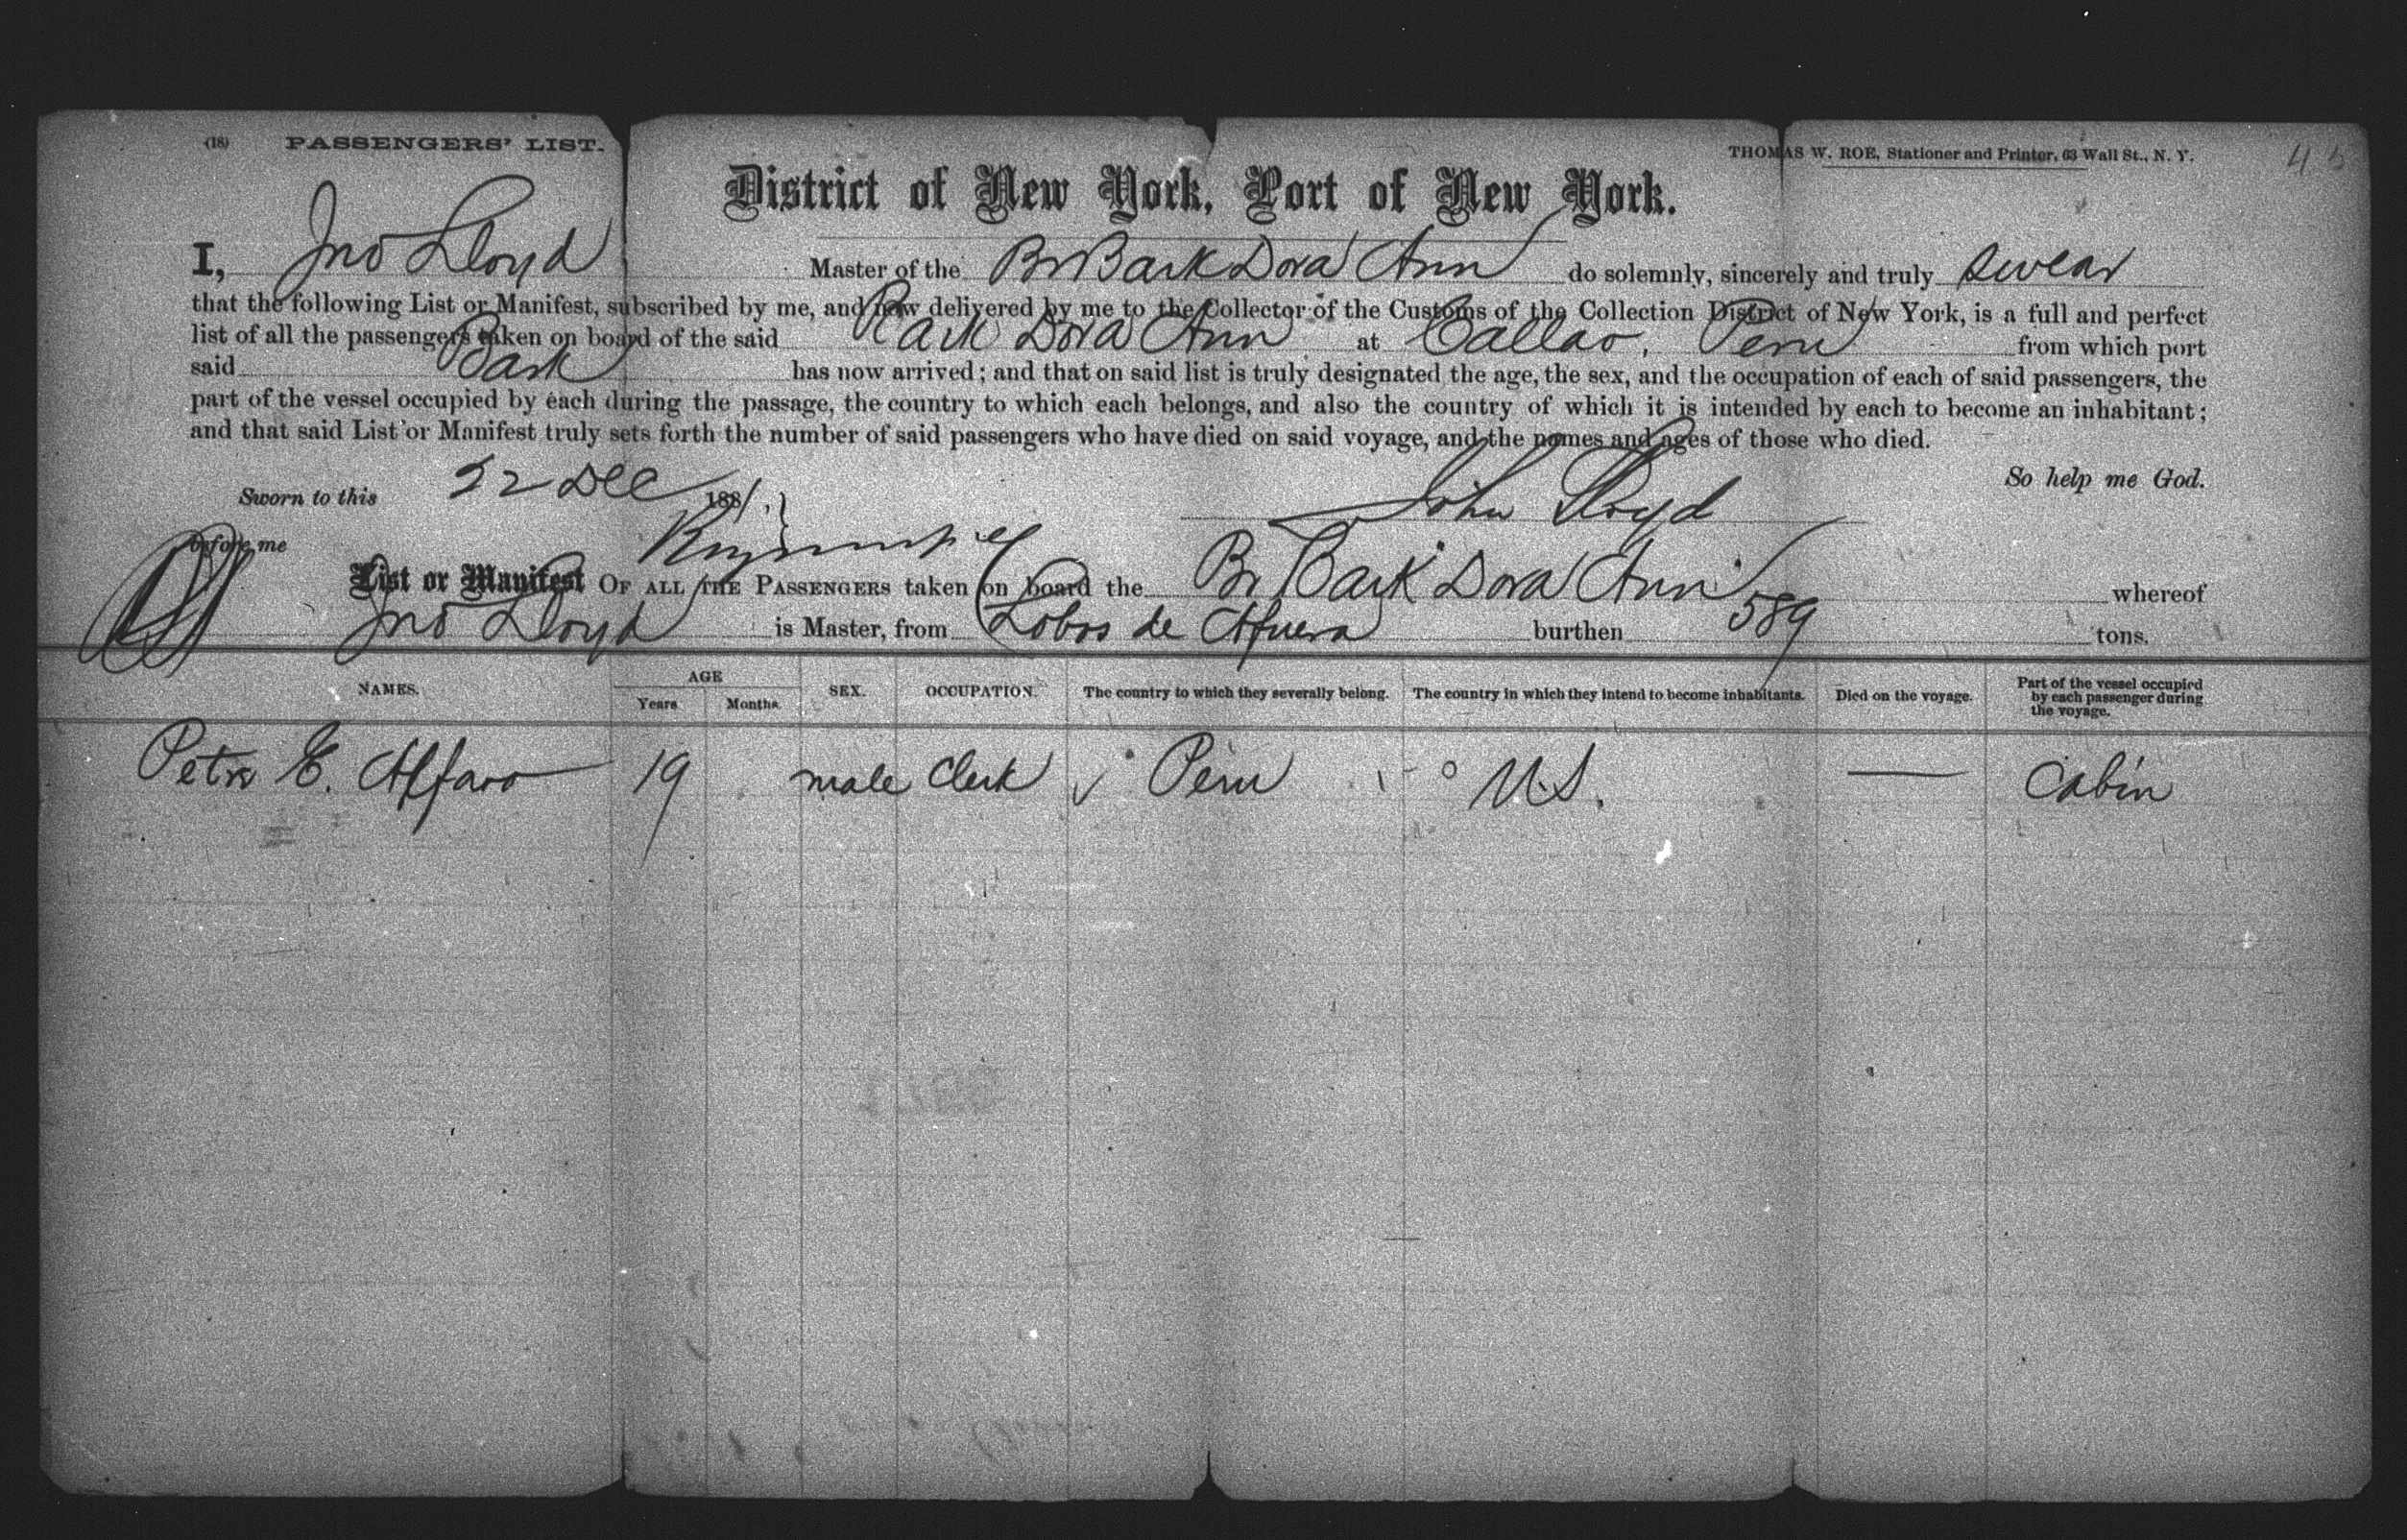 (18) PASSENGERS' LIST.
THOMAS W. ROE, Stationer and Printer, 63 Wall St., N. Y.
District of New York, Port of New York.
I, Jno Lloyd Master of the Br Bark Dora Ann do solemnly, sincerely and truly swear
that the following List or Manifest, subscribed by me, and now delivered by me to the Collector of the Customs of the Collection District of New York, is a full and perfect
list of all the passengers taken on board of the said Bark Dora Ann at Callao, Peru from which port
said Bark has now arrived; and that on said list is truly designated the age, the sex, and the occupation of each of said passengers, the
part of the vessel occupied by each during the passage, the country to which each belongs, and also the country of which it is intended by each to become an inhabitant;
and that said List or Manifest truly sets forth the number of said passengers who have died on said voyage, and the names and ages of those who died.
So help me God.
Sworn to this 22 Dec 1881
John Lloyd
before me
List or Manifest OF ALL THE PASSENGERS taken on board the Br Bark Dora Ann whereof
Jno Lloyd is Master, from Lobos de Afuera burthen 589 tons.
NAMES. AGE Years Months. SEX. OCCUPATION. The country to which they severally belong. The country in which they intend to become inhabitants. Died on the voyage. Part of the vessel occupied by each passenger during the voyage.
Petro E. Alfaro 19 male Clerk Peru U.S. — Cabin